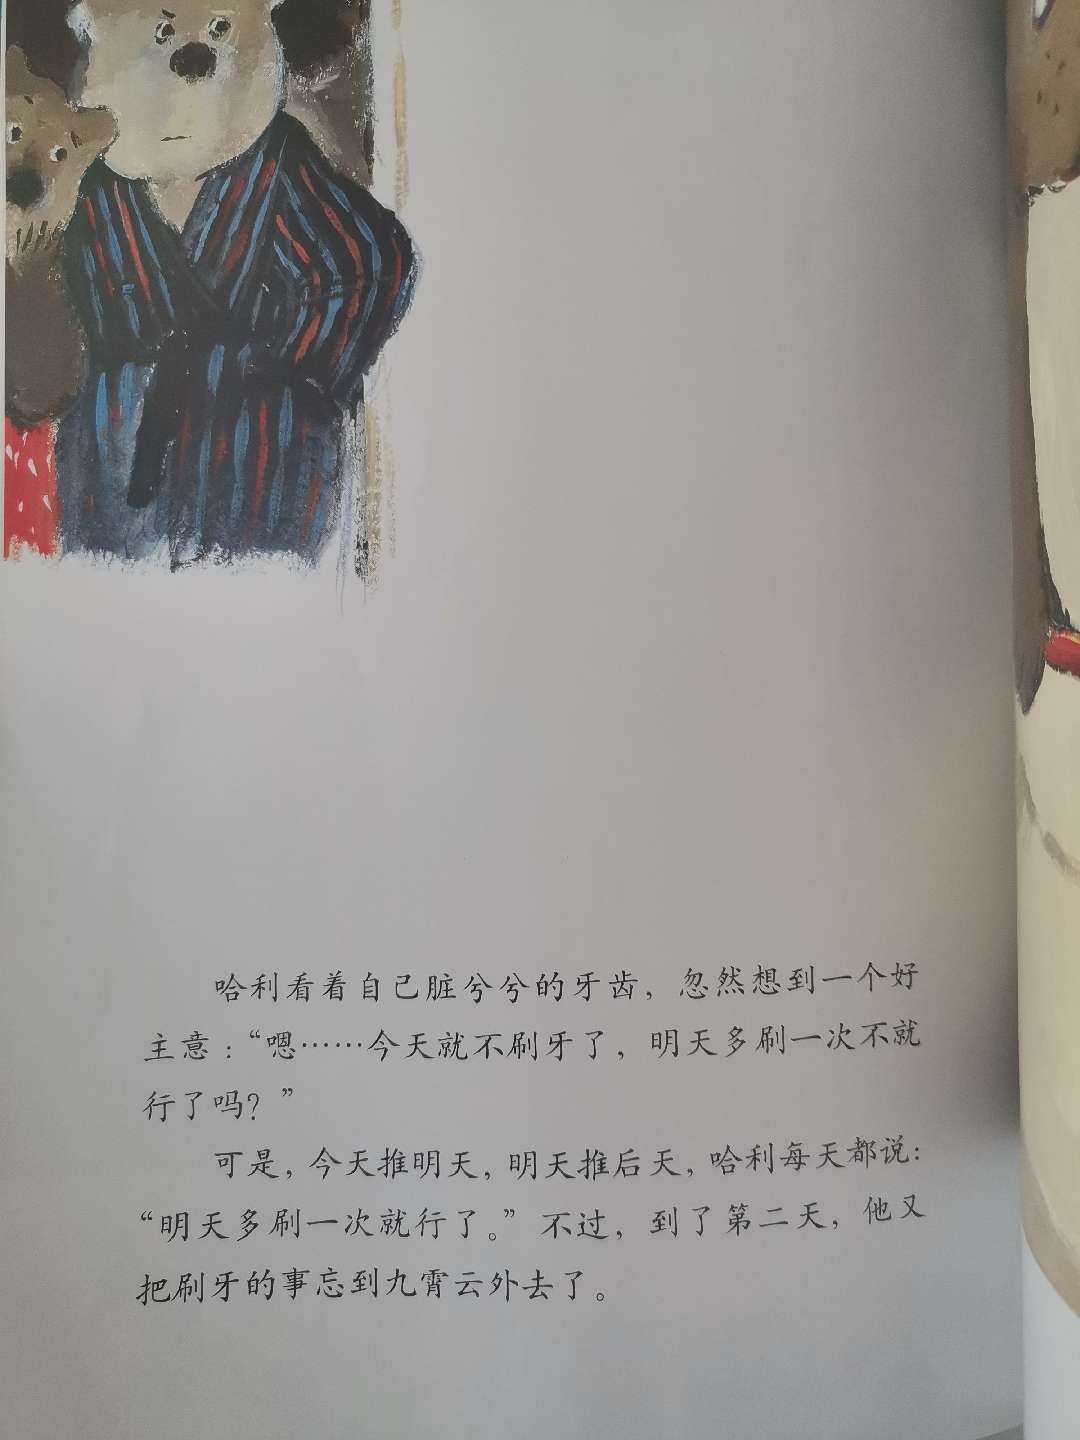 哈利看着自己脏兮兮的牙齿，忽然想到一个好
主意：“嗯……今天就不刷牙了，明天多刷一次不就
行了吗？”
可是，今天推明天，明天推后天，哈利每天都说：
“明天多刷一次就行了。”不过，到了第二天，他又
把刷牙的事忘到九霄云外去了。